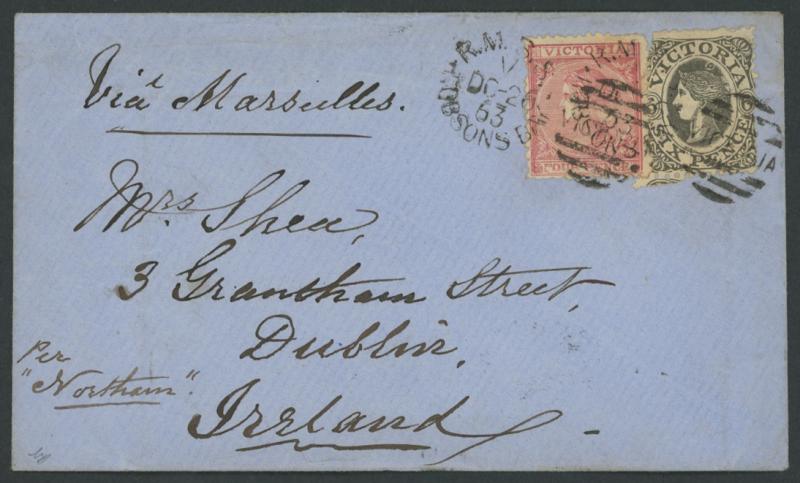 Viâ Marseilles.
Mrs Shea,
3 Grantham Street,
Dublin,
Ireland
Per
"Northam".
VICTORIA
FOURPENCE
VICTORIA
SIX PENCE
R.M
DC
63
SONS BAY
R.M